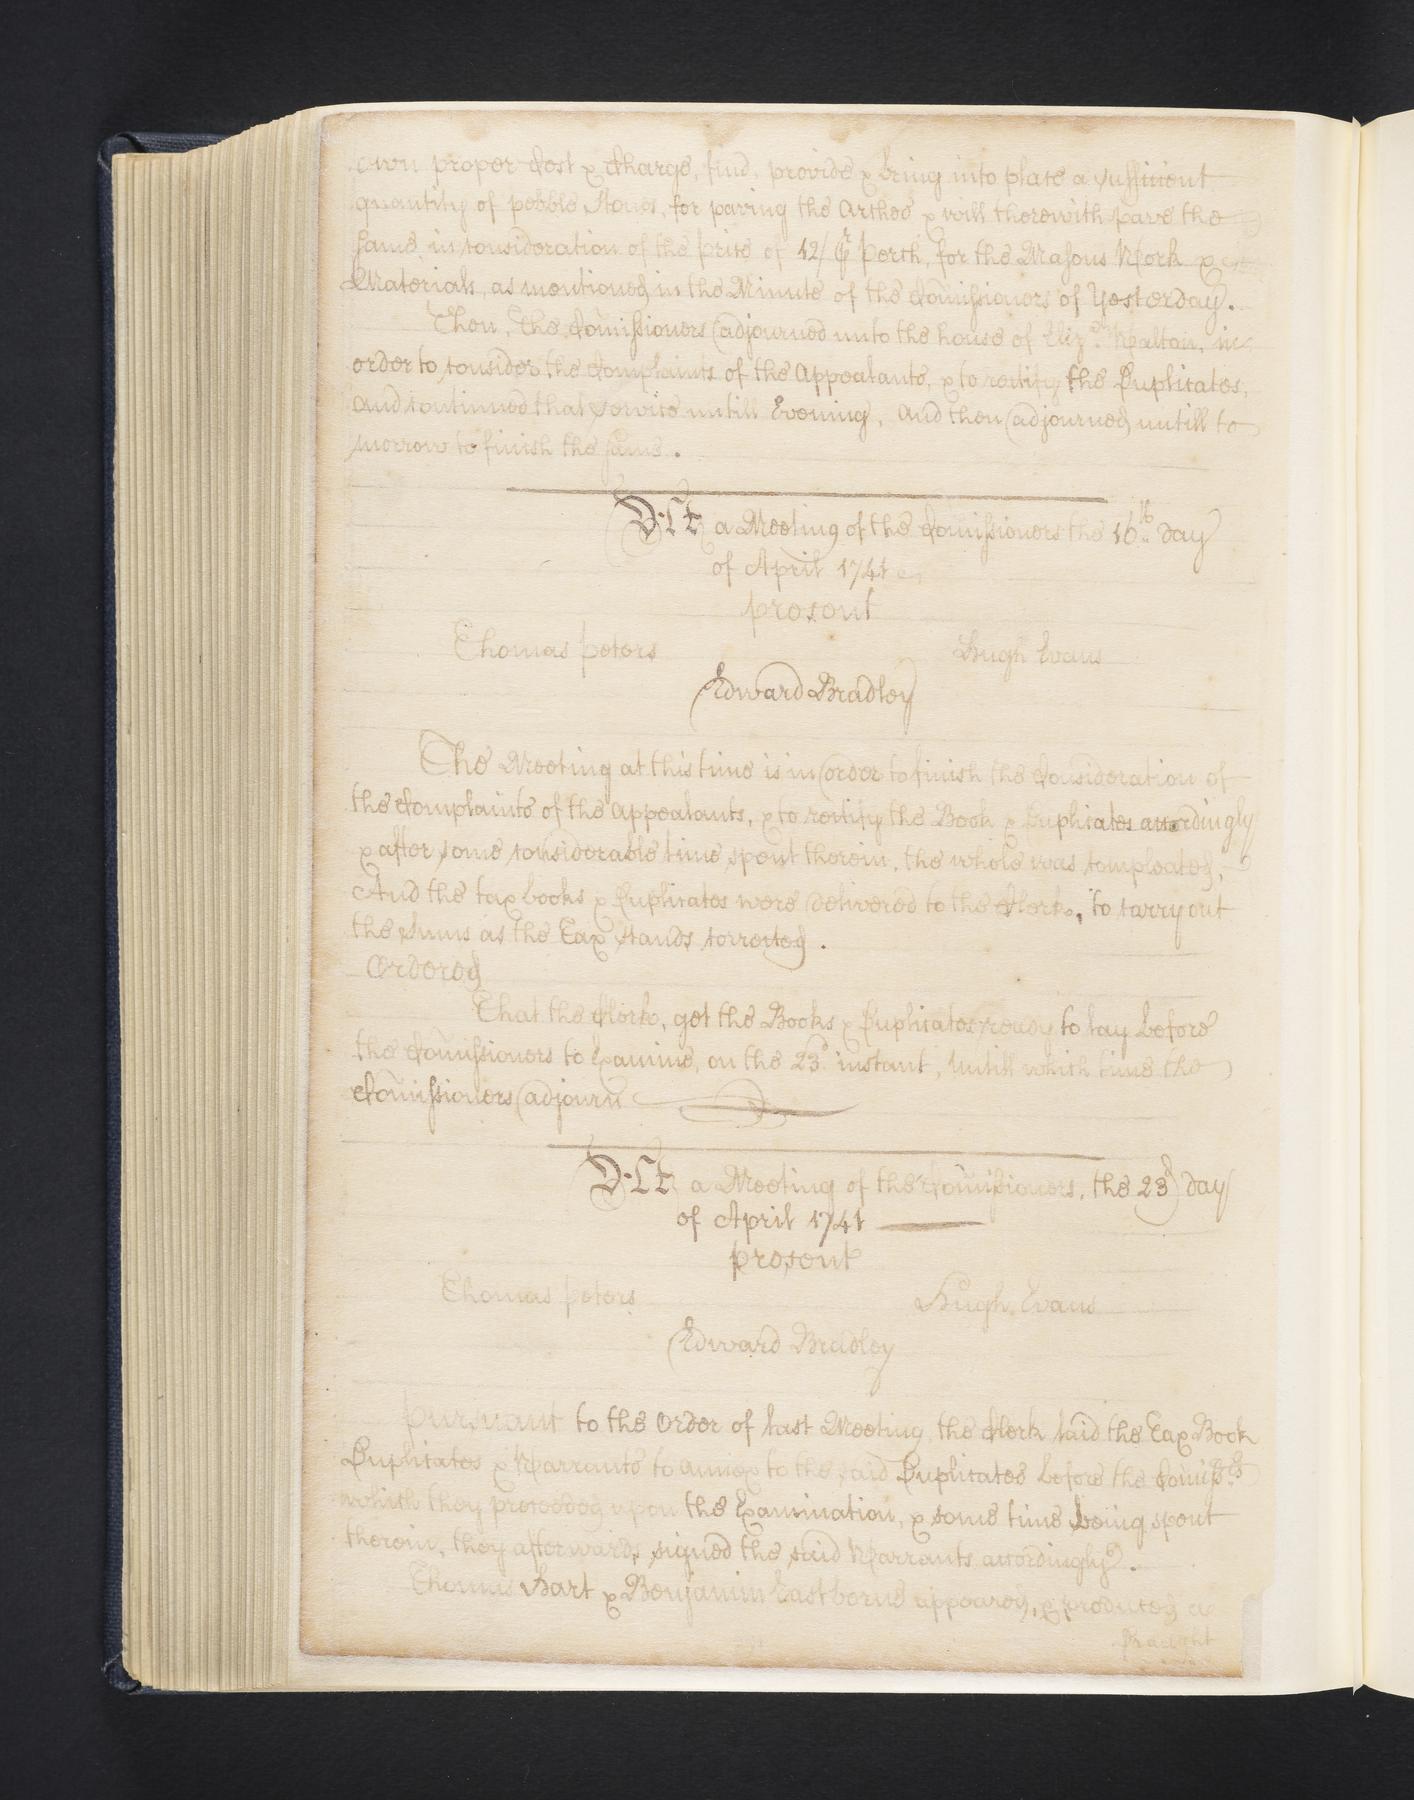 own proper Cost & Charge, find, provide & bring into place a sufficient
quantity of pebble Stones, for paving the Arches & will therewith pave the
same, in consideration of the price of 12/ ⅌ Perch, for the Masons Work &
Materials, as mentioned in the Minute of the Comissioners of Yesterday.
Then, the Comissioners adjourned unto the house of Eliz:th Walton, in
order to consider the Complaints of the Appealants, & to rectify the Duplicates,
and continued that service untill Evening, and then adjourned untill to
morrow to finish the same.
At a Meeting of the Comissioners the 16th day
of April 1741
present
Thomas Peters Hugh Evans
Edward Bradley
The Meeting at this time is in order to finish the Consideration of
the Complaints of the appealants, & to rectify the Book & Duplicates accordingly
& after some considerable time spent therein, the whole was compleated,
And the tax books & Duplicates were delivered to the Clerk, to carry out
the Sums as the Tax stands corrected.
Ordered
That the Clerk, get the Books & Duplicates ready to lay before
the Comissioners to Examine, on the 23d instant, untill which time the
Comissioners adjourn
At a Meeting of the Comissioners, the 23d day
of April 1741
present
Thomas Peters Hugh Evans
Edward Bradley
Pursuant to the Order of last Meeting, the Clerk laid the Tax Book
Duplicates & Warrants to annex to the said Duplicates before the Comissrs
which they proceeded upon the Examination, & some time being spent
therein, they afterwards signed the said Warrants accordingly.
Thomas Hart & Benjamin Eastborne appeared, & produced a
Draught